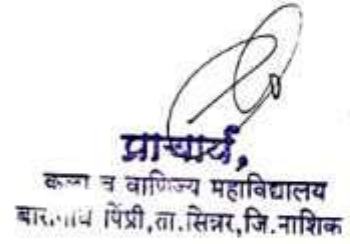 प्राचार्य,
व वाणिज्य महाविद्यालय
पिंप्री,ता.सिन्नर,जि.नाशिक